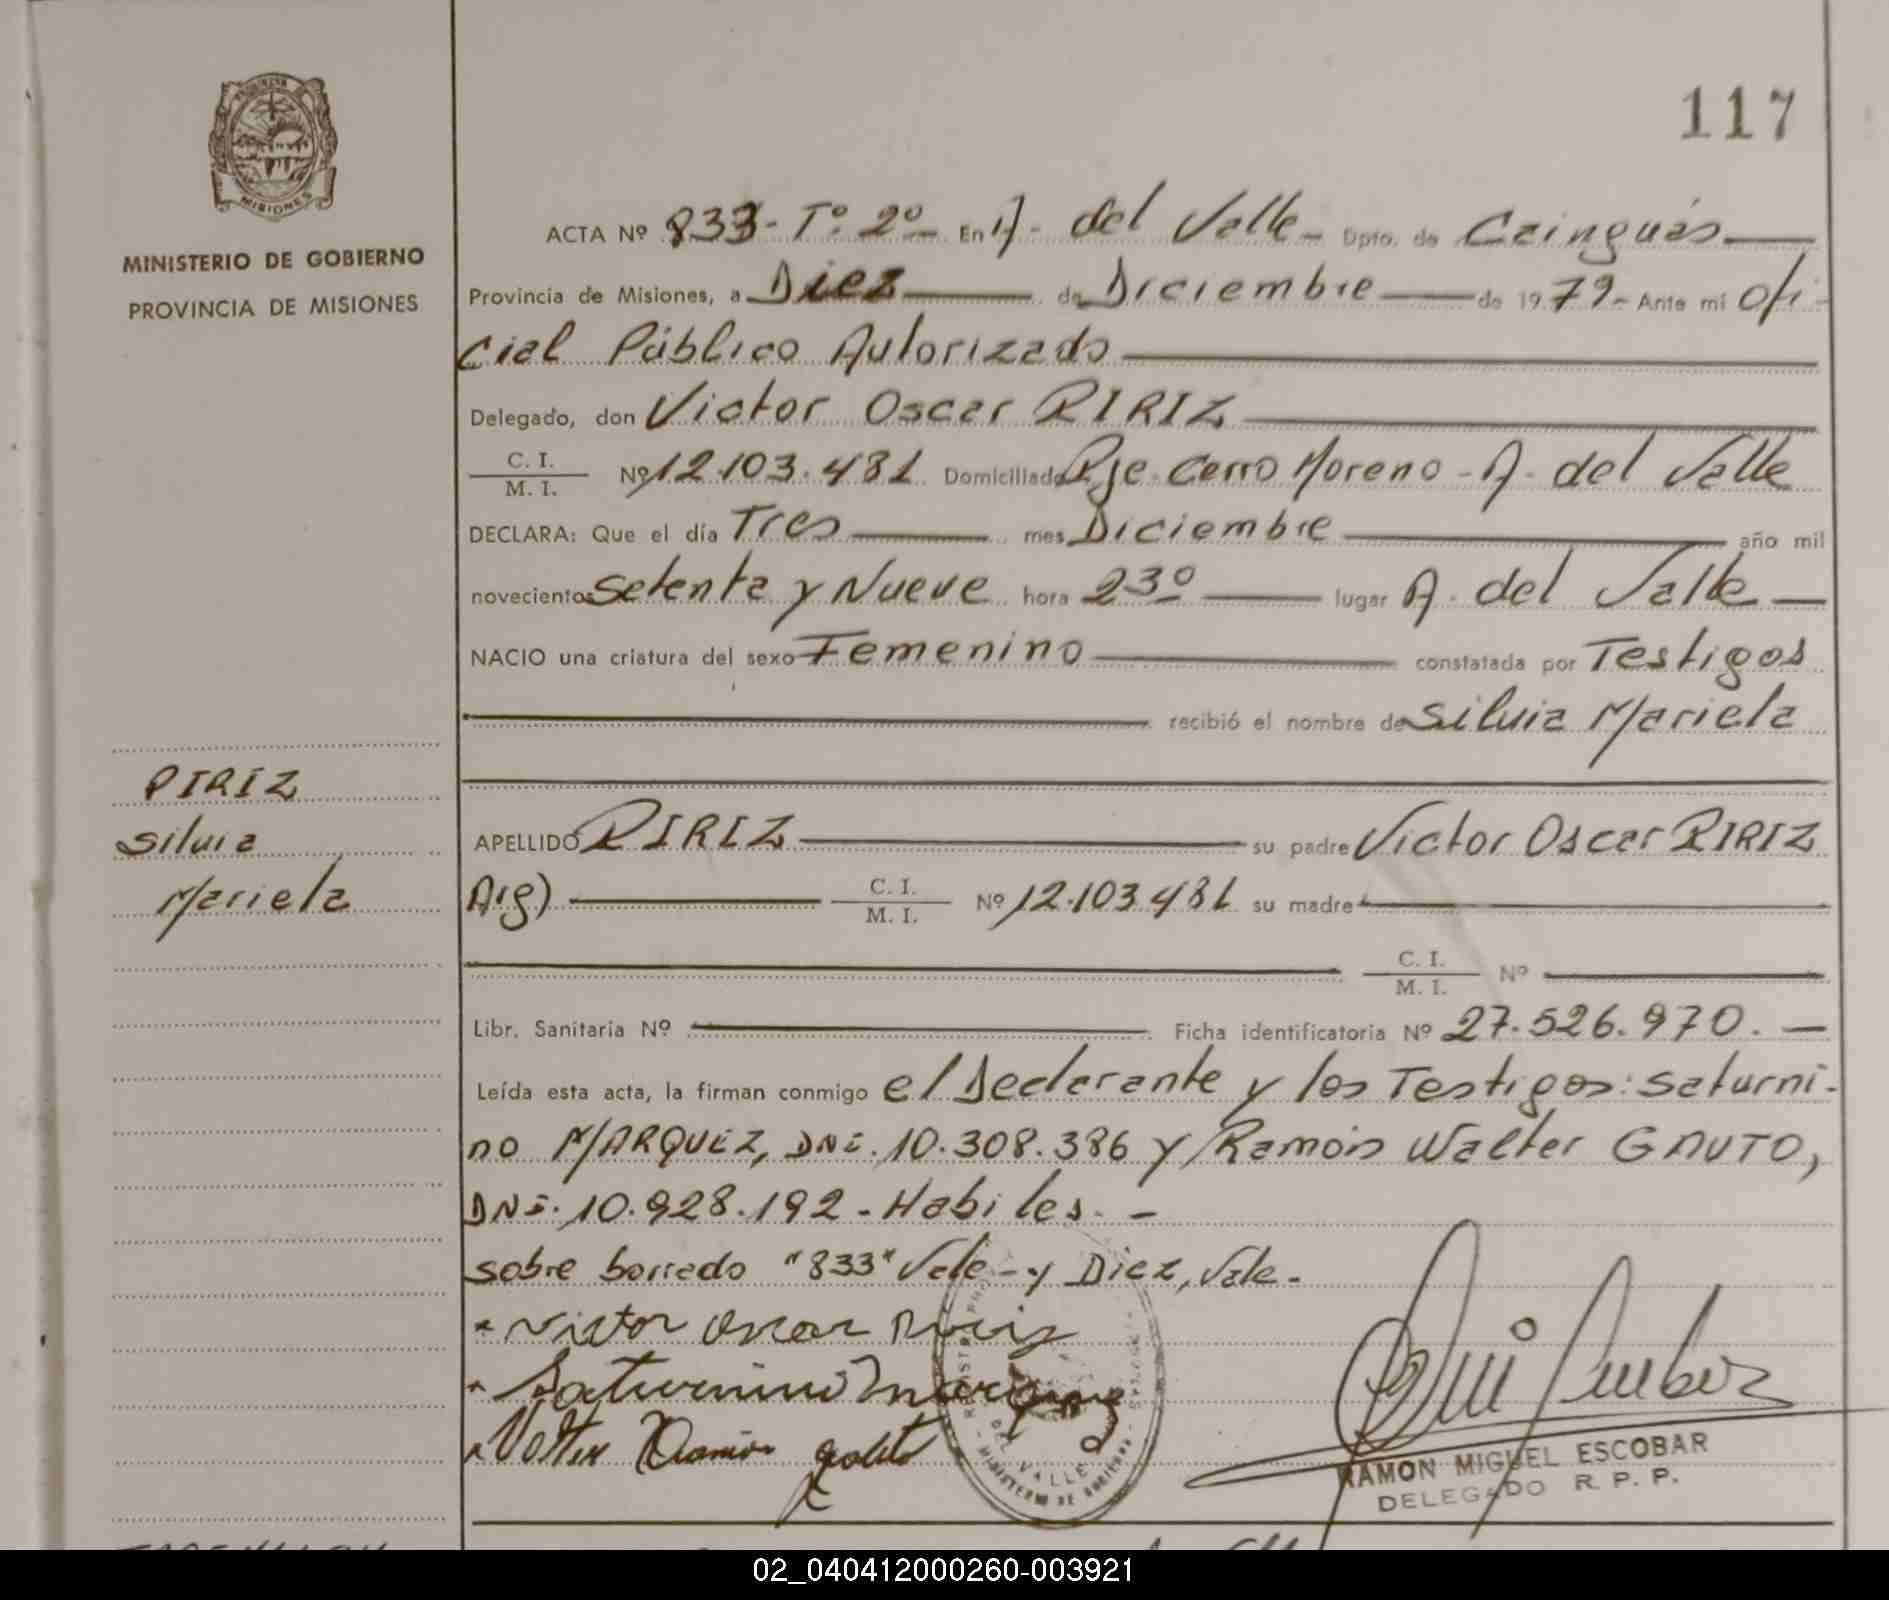 117
MISIONES
MINISTERIO DE GOBIERNO
PROVINCIA DE MISIONES
PIRIZ
Silvia
Mariela
ACTA Nº 833- Tº 2º- En A. del Valle- Dpto. de Cainguás
Provincia de Misiones, a Diez de Diciembre de 1979- Ante mi ofi-
cial Público Autorizado
Delegado, don Victor Oscar PIRIZ
C. I.
M. I. Nº 12.103.481 Domiciliado Pje. Cerro Moreno - A. del Valle
DECLARA: Que el día Tres mes Diciembre año mil
novecientos Setenta y Nueve hora 23º lugar A. del Valle
NACIO una criatura del sexo Femenino constatada por Testigos
recibió el nombre de Silvia Mariela
APELLIDO PIRIZ su padre Victor Oscar PIRIZ
Arg) C. I.
M. I. Nº 12.103.481 su madre
C. I.
M. I. Nº
Libr. Sanitaria Nº Ficha identificatoria Nº 27.526.970. -
Leída esta acta, la firman conmigo el Declarante y los Testigos: Saturni-
no MARQUEZ, DNI. 10.308.386 y Ramón Walter GAUTO,
DNI. 10.928.192 - Habiles. -
sobre borrado "833" Vale - y Diez, Vale.
Victor Oscar Piriz
Saturnino
Ramón
DEL VALLE
RAMON MIGUEL ESCOBAR
DELEGADO R. P. P.
02_040412000260-003921